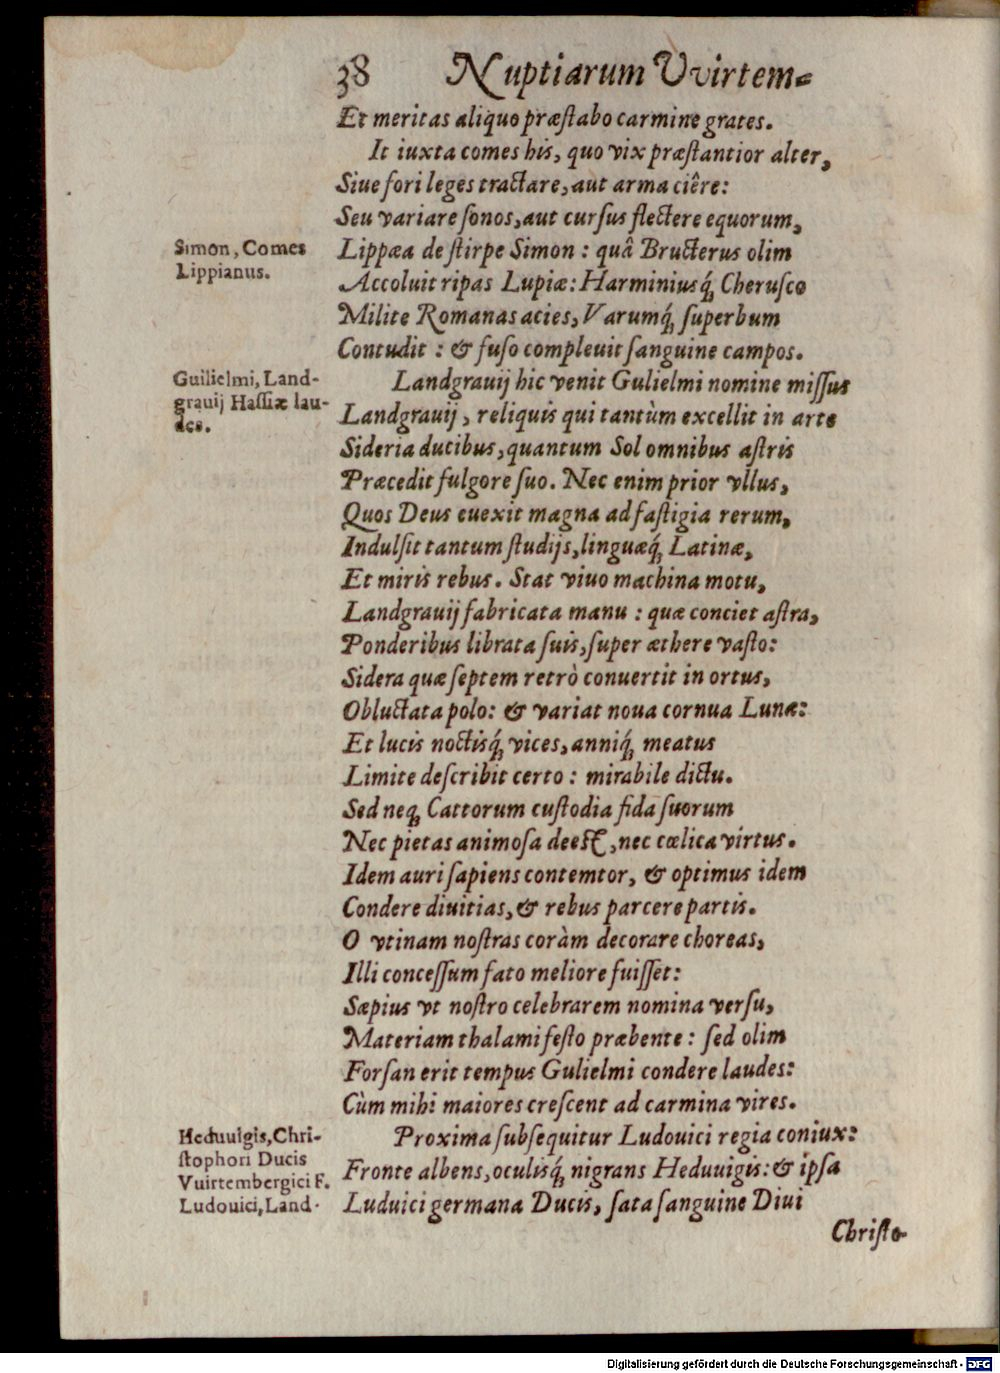 38 Nuptiarum Vvirtem-
Et meritas aliquo præſtabo carmine grates.
It iuxta comes his, quo vix præſtantior alter,
Siue fori leges tractare, aut arma ciêre:
Seu variare ſonos, aut curſus flectere equorum,
Simon, Comes
Lippianus.
Lippæa de ſtirpe Simon : quâ Bructerus olim
Accoluit ripas Lupiæ: Harminiusq́ꝫ Cheruſco
Milite Romanas acies, Varumq́ꝫ ſuperbum
Contudit : & fuſo compleuit ſanguine campos.
Guilielmi, Land-
grauij Haſſiæ lau-
des.
Landgrauij hic venit Gulielmi nomine miſſus
Landgrauij, reliquis qui tantùm excellit in arte
Sideria ducibus, quantum Sol omnibus aſtris
Præcedit fulgore ſuo. Nec enim prior vllus,
Quos Deus euexit magna ad faſtigia rerum,
Indulſit tantum ſtudijs, linguæq́ꝫ Latinæ,
Et miris rebus. Stat viuo machina motu,
Landgrauij fabricata manu : quæ conciet aſtra,
Ponderibus librata ſuis, ſuper æthere vaſto:
Sidera quæ ſeptem retrò conuertit in ortus,
Obluctata polo: & variat noua cornua Lunæ:
Et lucis noctisq́ꝫ vices, anniq́ꝫ meatus
Limite deſcribit certo : mirabile dictu.
Sed neqꝫ Cattorum cuſtodia fida ſuorum
Nec pietas animoſa deeſt, nec cœlica virtus.
Idem auri ſapiens contemtor, & optimus idem
Condere diuitias, & rebus parcere partis.
O vtinam noſtras coràm decorare choreas,
Illi conceſſum fato meliore fuiſſet:
Sæpius vt noſtro celebrarem nomina verſu,
Materiam thalami feſto præbente : ſed olim
Forſan erit tempus Gulielmi condere laudes:
Cùm mihi maiores creſcent ad carmina vires.
Heduuigis, Chri-
ſtophori Ducis
Vuirtembergici F.
Ludouici, Land-
Proxima ſubſequitur Ludouici regia coniux:
Fronte albens, oculisq́ꝫ nigrans Heduuigis: & ipſa
Luduici germana Ducis, ſata ſanguine Diui
Chriſto-
Digitalisierung gefördert durch die Deutsche Forschungsgemeinschaft - DFG